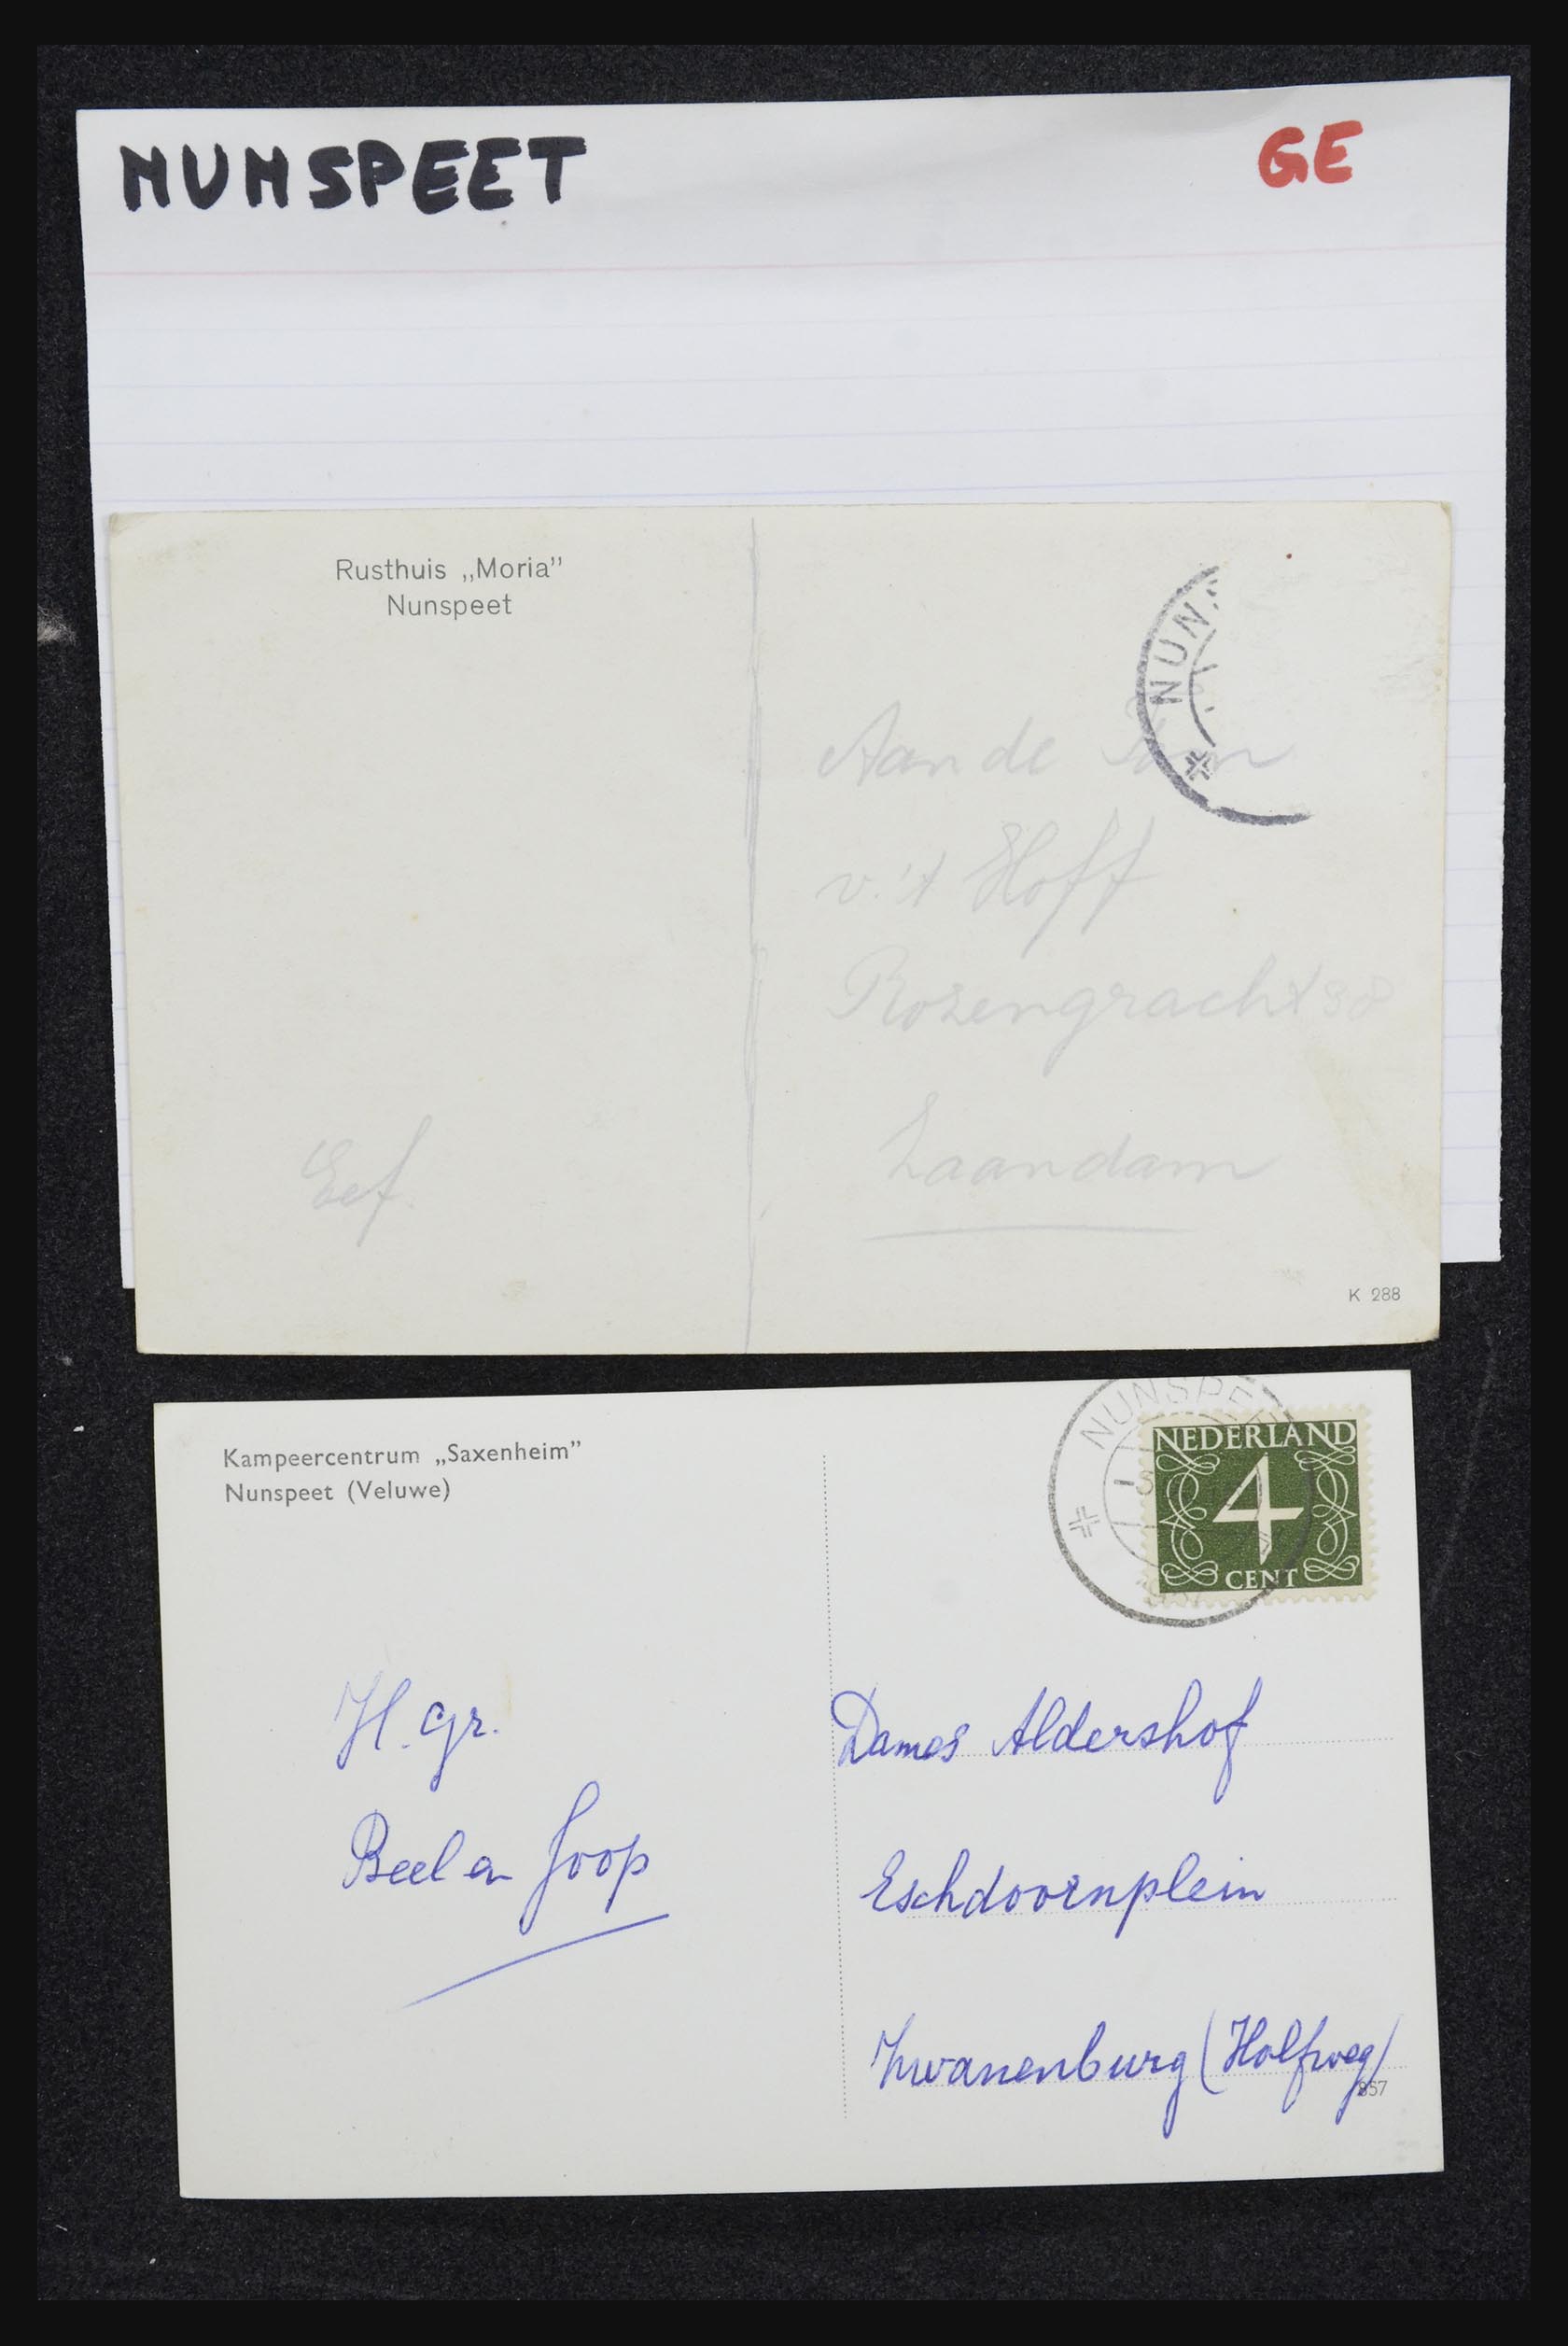 NUNSPEET
GE
Rusthuis „Moria”
Nunspeet
NUN
Aan de Fam
v. 't Hoff
Rozengracht 38
Zaandam
Eef.
K 288
Kampeercentrum „Saxenheim”
Nunspeet (Veluwe)
NUNSPEE
NEDERLAND
4
CENT
H. gr.
Beel en Joop
Dames Aldershof
Eschdoornplein
Zwanenburg (Halfweg)
857